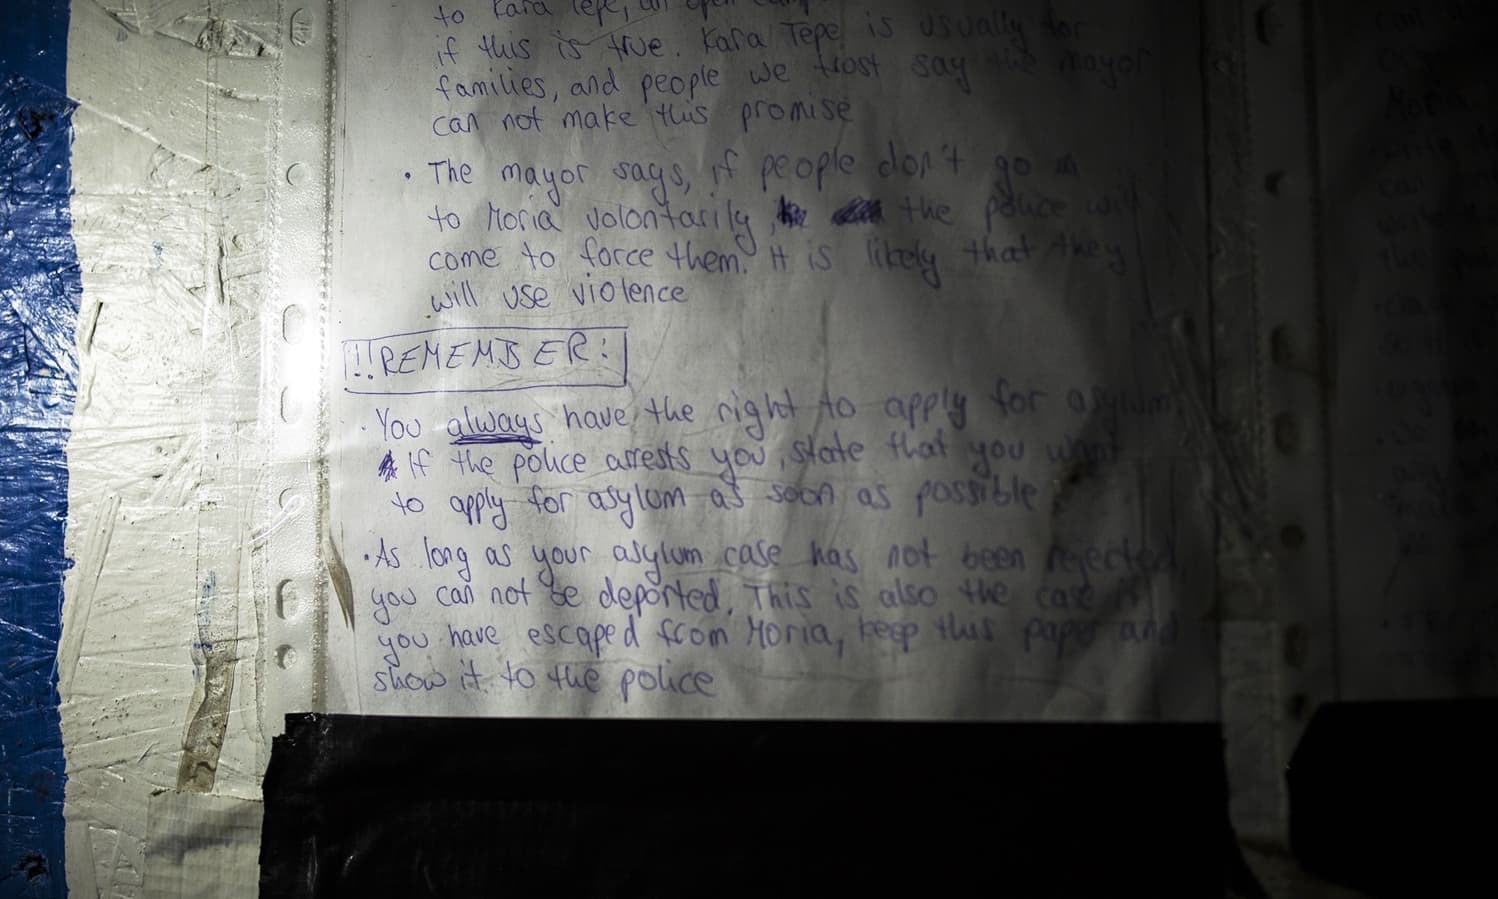 to Kara Tepe, an open camp
if this is true. Kara Tepe is usually for
families, and people we trost say the mayor
can not make this promise
• The mayor says, if people don't go
to Moria volontarily, the police will
come to force them. It is likely that they
will use violence
!!REMEMBER!
• You always have the right to apply for asylum
If the police arrests you, state that you want
to apply for asylum as soon as possible
• As long as your asylum case has not been rejected,
you can not be deported. This is also the case if
you have escaped from Moria, keep this paper and
show it to the police